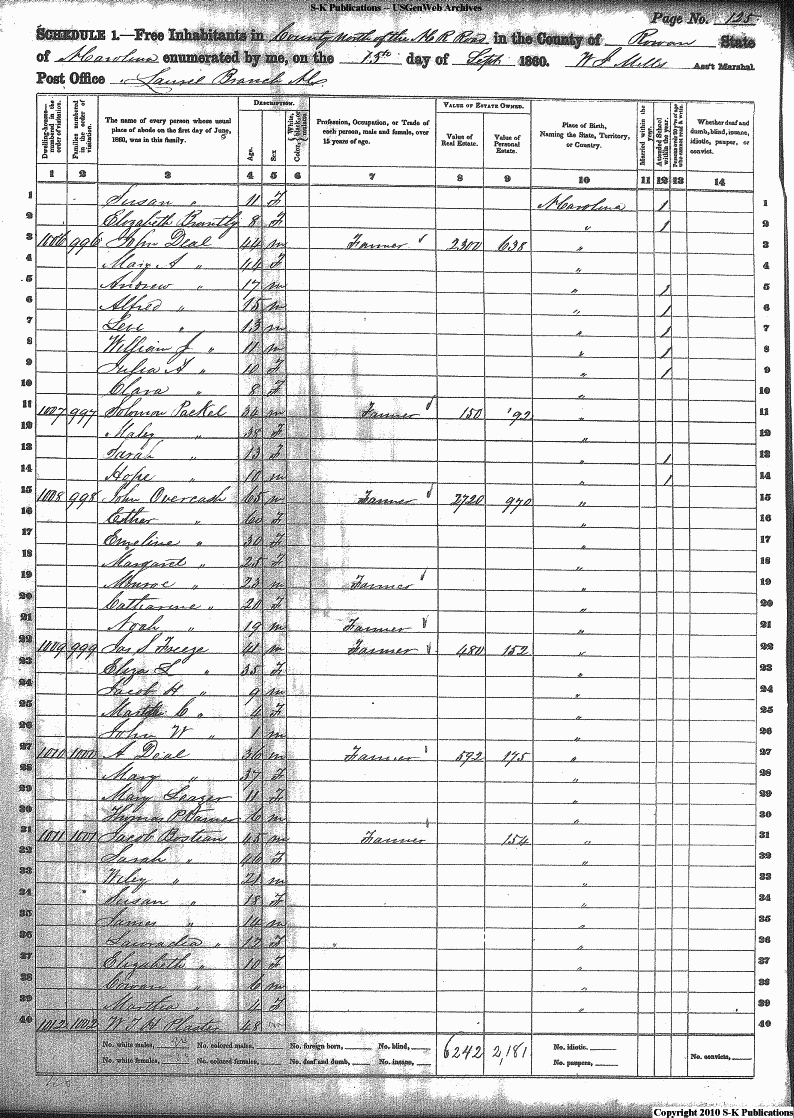 S-K Publications – USGenWeb Archives
Page No. 125
SCHEDULE 1.—Free Inhabitants in County North of the N. C. R Road in the County of Rowan State
of N Carolina enumerated by me, on the 15th day of Sept 1860. W J Mills Ass't Marshal
Post Office Laurel Branch
DESCRIPTION. VALUE OF ESTATE OWNED.
Dwelling-houses—numbered in the order of visitation. Families numbered in the order of visitation. The name of every person whose usual place of abode on the first day of June, 1860, was in this family. Age. Sex Color, White, black, or mulatto. Profession, Occupation, or Trade of each person, male and female, over 15 years of age. Value of Real Estate. Value of Personal Estate. Place of Birth, Naming the State, Territory, or Country. Married within the year. Attended School within the year. Persons over 20 y'rs of age who cannot read & write. Whether deaf and dumb, blind, insane, idiotic, pauper, or convict.
1 2 3 4 5 6 7 8 9 10 11 12 13 14
1 Susan " 11 F N Carolina 1 1
2 Elizabeth Brantly 8 F " 1 2
3 1006 996 John Deal 44 m Farmer 2300 638 " 3
4 Mary A " 44 F " 4
5 Andrew " 17 m " 1 5
6 Alfred " 15 m " 1 6
7 Levi " 13 m " 1 7
8 William J " 11 m " 1 8
9 Julia A " 10 F " 1 9
10 Clara " 8 F " 10
11 1007 997 Solomon Packel 34 m Farmer 150 92 " 11
12 Maley " 38 F " 12
13 Sarah " 13 F " 1 13
14 Hope " 10 m " 1 14
15 1008 998 John Overcash 65 m Farmer 2720 970 " 15
16 Esther " 60 F " 16
17 Emeline " 30 F " 17
18 Margaret " 25 F " 18
19 Monroe " 23 m Farmer " 19
20 Catharine " 20 F " 20
21 Noah " 19 m Farmer " 21
22 1009 999 Jas S Freeze 41 m Farmer 480 152 " 22
23 Eliza L " 35 F " 23
24 Jacob H " 9 m " 24
25 Martha C " 4 F " 25
26 John W " 1 m " 26
27 1010 1000 A Deal 36 m Farmer 592 175 " 27
28 Mary " 37 F " 28
29 Mary Leazer 11 F " 29
30 Thomas P 6 m " 30
31 1011 1001 Jacob Bostian 45 m Farmer 154 " 31
32 Sarah " 46 F " 32
33 Wiley " 21 m " 33
34 Susan " 18 F " 34
35 James " 14 m " 35
36 " 12 F " 36
37 Elizabeth " 10 F " 37
38 Cowan " 6 m " 38
39 Martha " 4 F " 39
40 1012 1002 W T H Plaster 48 40
No. white males, No. colored males, No. foreign born, No. blind, 6242 2,181 No. idiotic, No. convicts,
No. white females, No. colored females, No. deaf and dumb, No. insane, No. paupers,
Copyright 2010 S-K Publications